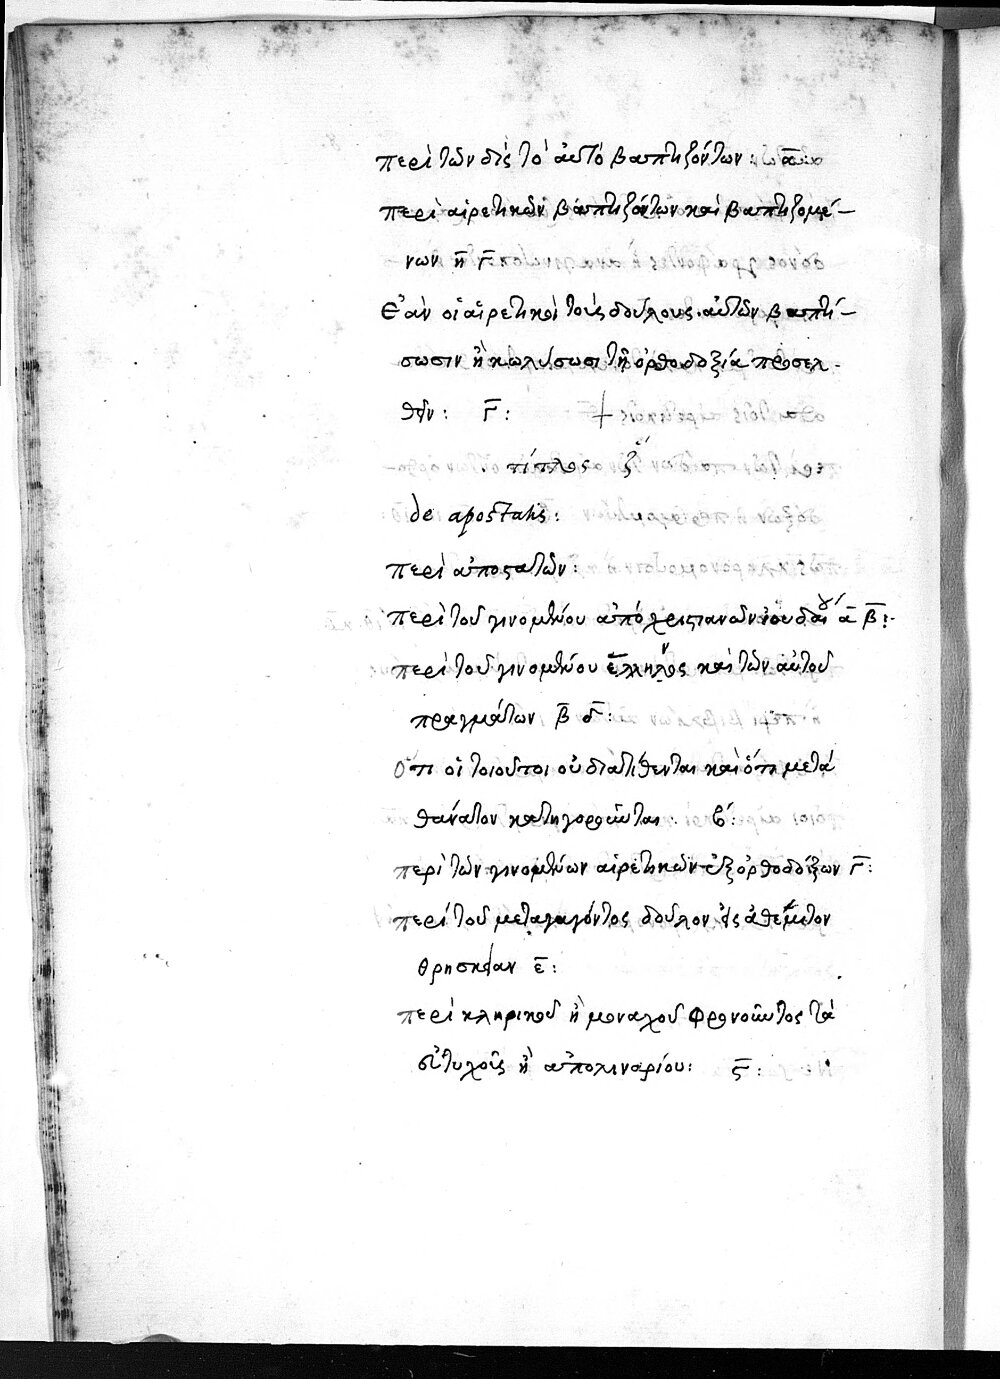 περὶ τῶν δὶς τὸ αὐτὸ βαπτηζόντων: ᾱ:
περὶ αἱρετηκῶν βαπτηζόντων καὶ βαπτηζομέ-
νων ἢ γ̄:
Ἐὰν οἱ αἱρετηκοὶ τοὺς δούλους αὐτῶν βαπτή-
σωσιν ἢ κωλύσωσι τῇ ὀρθοδοξία προσελ-
θεῖν: γ̄:
τίτλος ζ
de apostatis:
περὶ ἀποστατῶν:
περὶ τοῦ γινομένου ἀπὸ χριστιανῶν ἰουδαί ᾱ β̄:
περὶ τοῦ γινομένου ἕλληνος καὶ τῶν αὐτοῦ
πραγμάτων β̄ δ̄:
Ὅτι οἱ τοιοῦτοι οὐ διατίθενται καὶ ὅτι μετὰ
θάνατον κατηγοροῦνται: β:
περὶ τῶν γινομένων αἱρετηκῶν ἐξ ὀρθοδόξων γ̄:
περὶ τοῦ μεταγαγόντος δοῦλον εἰς ἀθέμιτον
θρησκείαν ε̄:
περὶ κληρικοῦ ἢ μοναχοῦ φρονοῦντος τὰ
εὐτυχοῦς ἢ ἀπολιναρίου: ϛ̄: